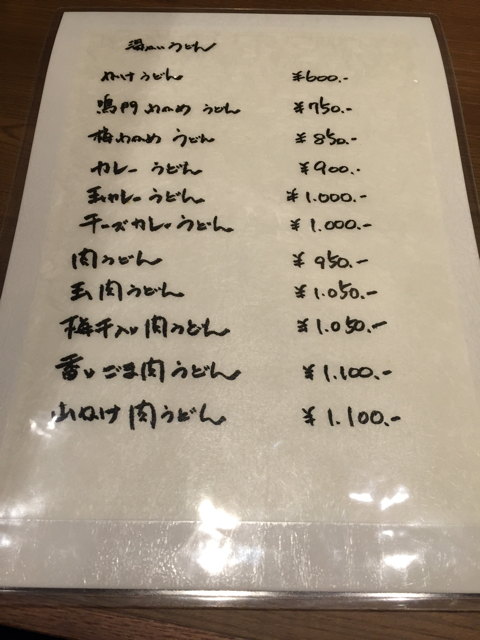 温かいうどん
かけうどん ¥600.-
鳴門わかめ うどん ¥750.-
梅わかめ うどん ¥850.-
カレー うどん ¥900.-
玉カレー うどん ¥1.000.-
チーズカレーうどん ¥1.000.-
肉うどん ¥950.-
玉肉うどん ¥1.050.-
梅干入り肉うどん ¥1.050.-
香りごま肉うどん ¥1.100.-
山かけ肉うどん ¥1.100.-